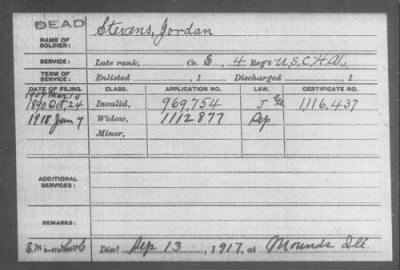 DEAD
NAME OF SOLDIER: Stevens, Jordan
SERVICE: Late rank, Co. E, 4 Reg't U.S.C.H.A.,
TERM OF SERVICE: Enlisted , 1 Discharged , 1
DATE OF FILING. CLASS. APPLICATION NO. LAW. CERTIFICATE NO.
1907 Mar 14
1890 Oct, 24 Invalid, 969,754 J 1,116,437
1918 Jan 7 Widow, 1112877 Sep
Minor,
ADDITIONAL SERVICES:
REMARKS:
Died Sep 13, 1917, at Mounds Ill.